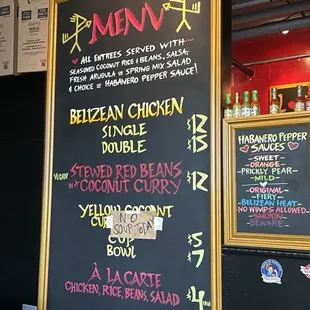 MENU
ALL ENTREES SERVED WITH
SEASONED COCONUT RICE & BEANS, SALSA,
FRESH ARUGULA OR SPRING MIX SALAD
& CHOICE OF HABANERO PEPPER SAUCE!
BELIZEAN CHICKEN
SINGLE $12
DOUBLE $15
VEGAN STEWED RED BEANS
COCONUT CURRY $12
YELLOW COCONUT
NO
SOUP TODAY
CUP $5
BOWL 7
À LA CARTE
CHICKEN, RICE, BEANS, SALAD $4
HABANERO PEPPER
SAUCES
SWEET
ORANGE
PRICKLY PEAR
-MILD-
ORIGINAL
FIERY
BELIZEAN HEAT
NO WIMPS ALLOWED
SMOKIN
BEWARE